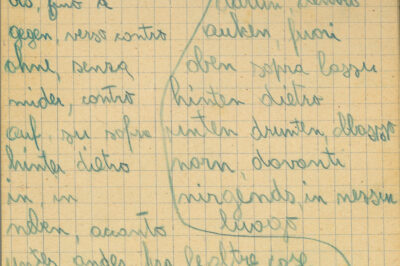 bis, fino a
gegen, verso contro
ohne, senza
wider, contro
auf su sopra
hinter dietro
in, in
neben, accanto
unter, ander, fra le altre cose
auken, fuori
oben sopra lassu
hinten dietro
unten drunten, abbasso
vorn, davanti
nirgends, in nessun
luogo